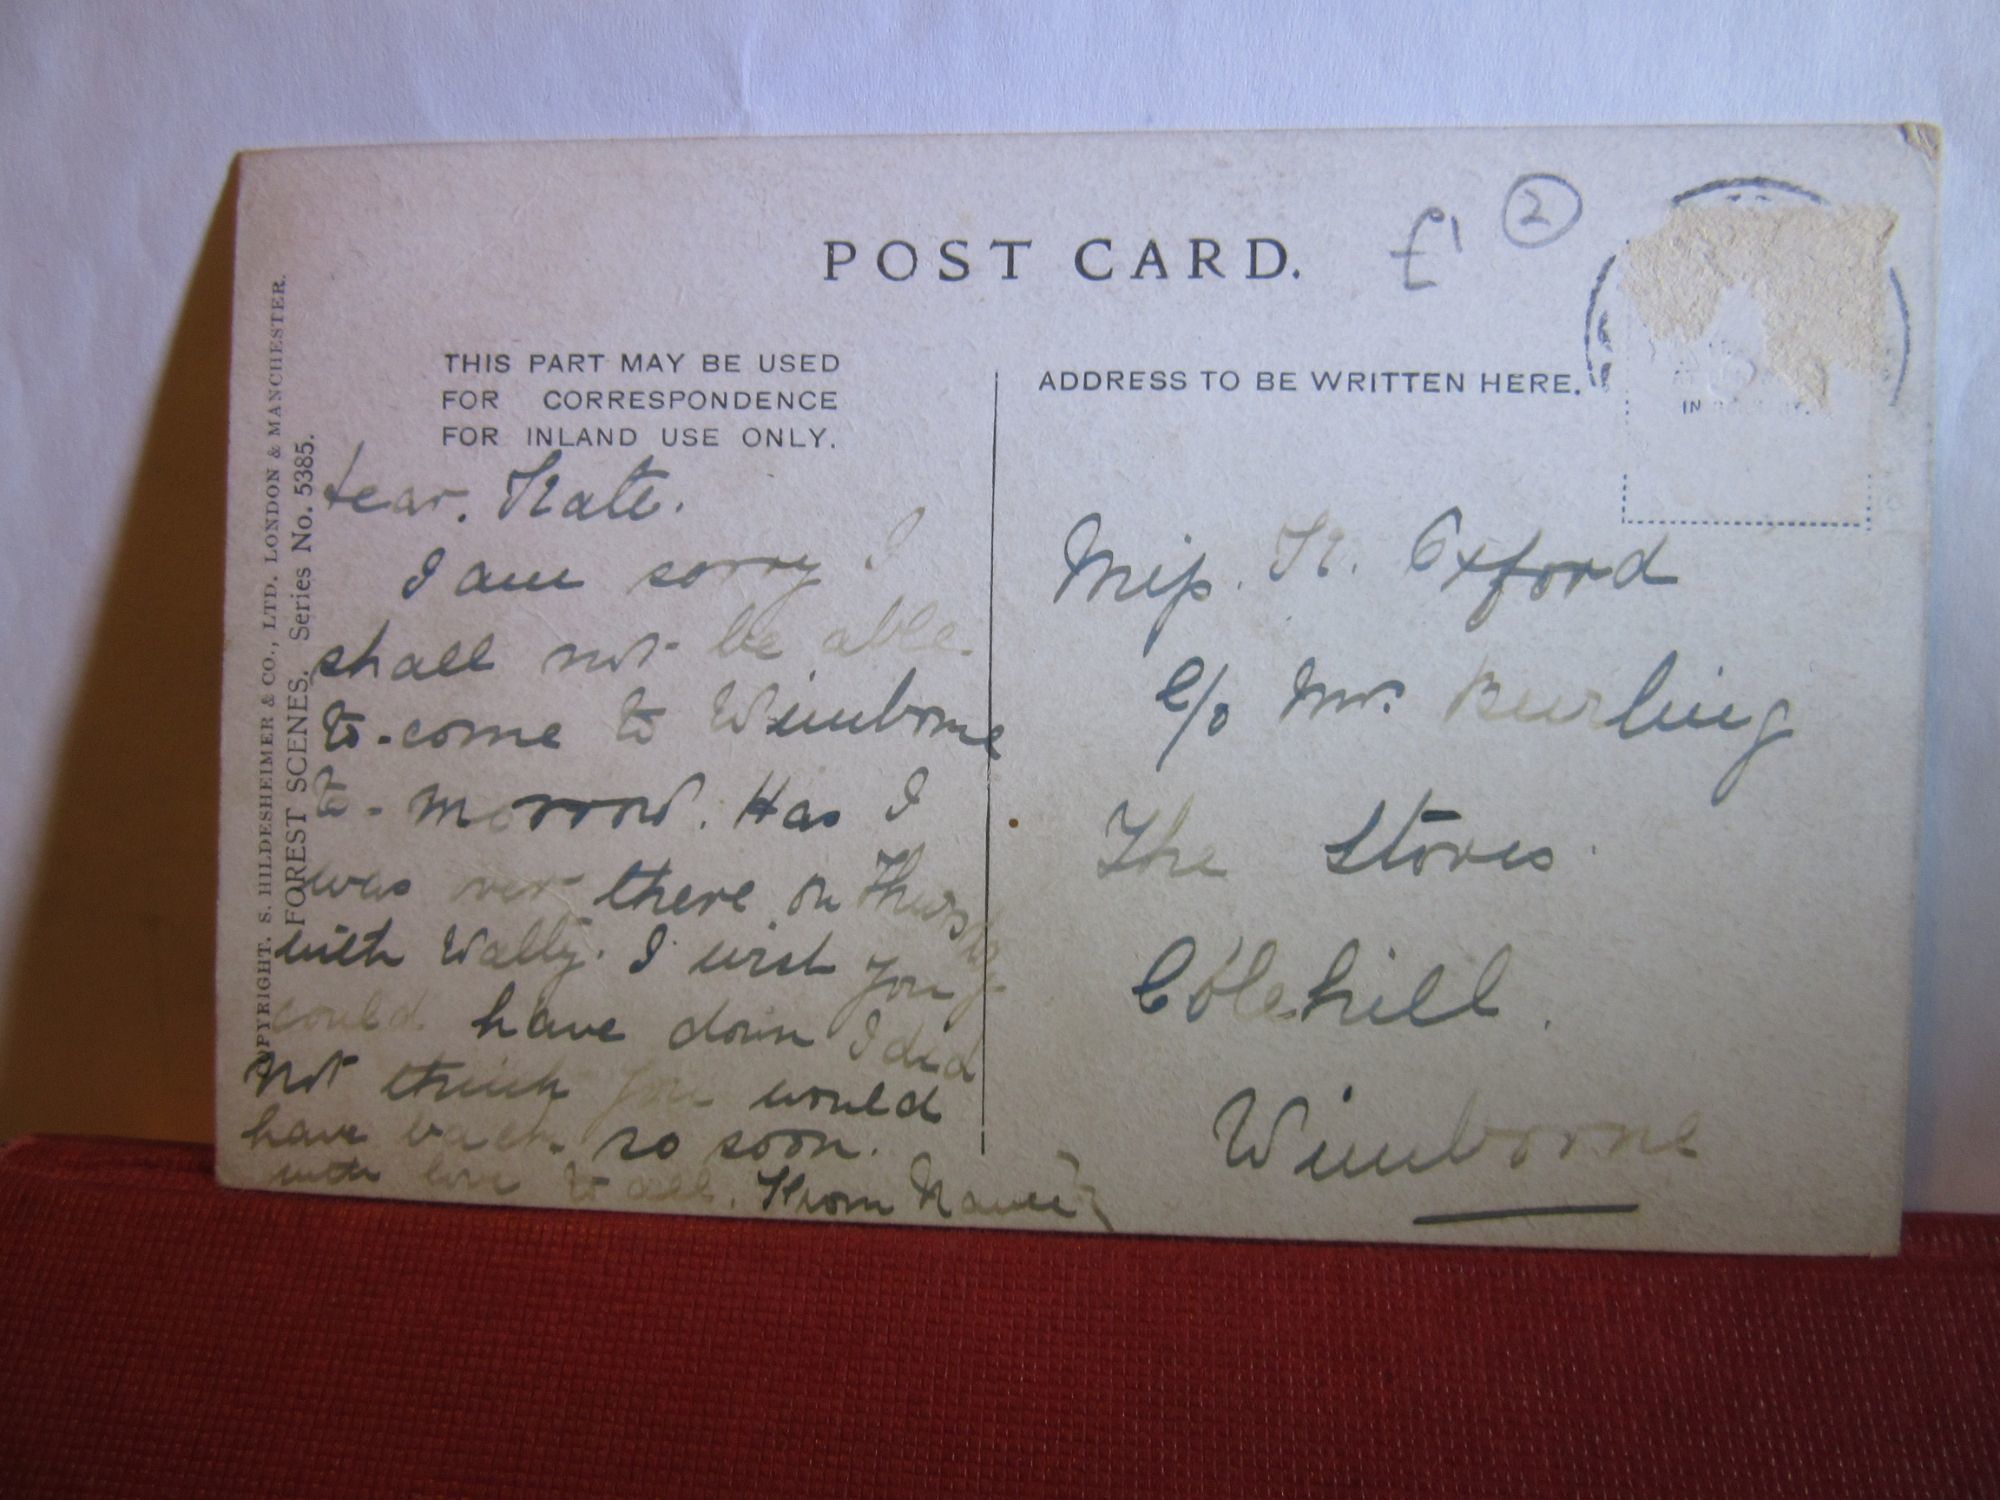 POST CARD.
£1 2
THIS PART MAY BE USED
FOR CORRESPONDENCE
FOR INLAND USE ONLY.
ADDRESS TO BE WRITTEN HERE.
COPYRIGHT. S. HILDESHEIMER & CO., LTD. LONDON & MANCHESTER.
FOREST SCENES. Series No. 5385.
Dear. Kate.
I am sorry I
shall not be able
to-come to Wimborne
to-morrow. Has I
was over there on Thursday
with Wally. I wish you
could have down I did
not think you would
have back so soon.
with love to all. From
Miss. K. Oxford
C/o Mr. Burling
The Stores
Colehill.
Wimborne